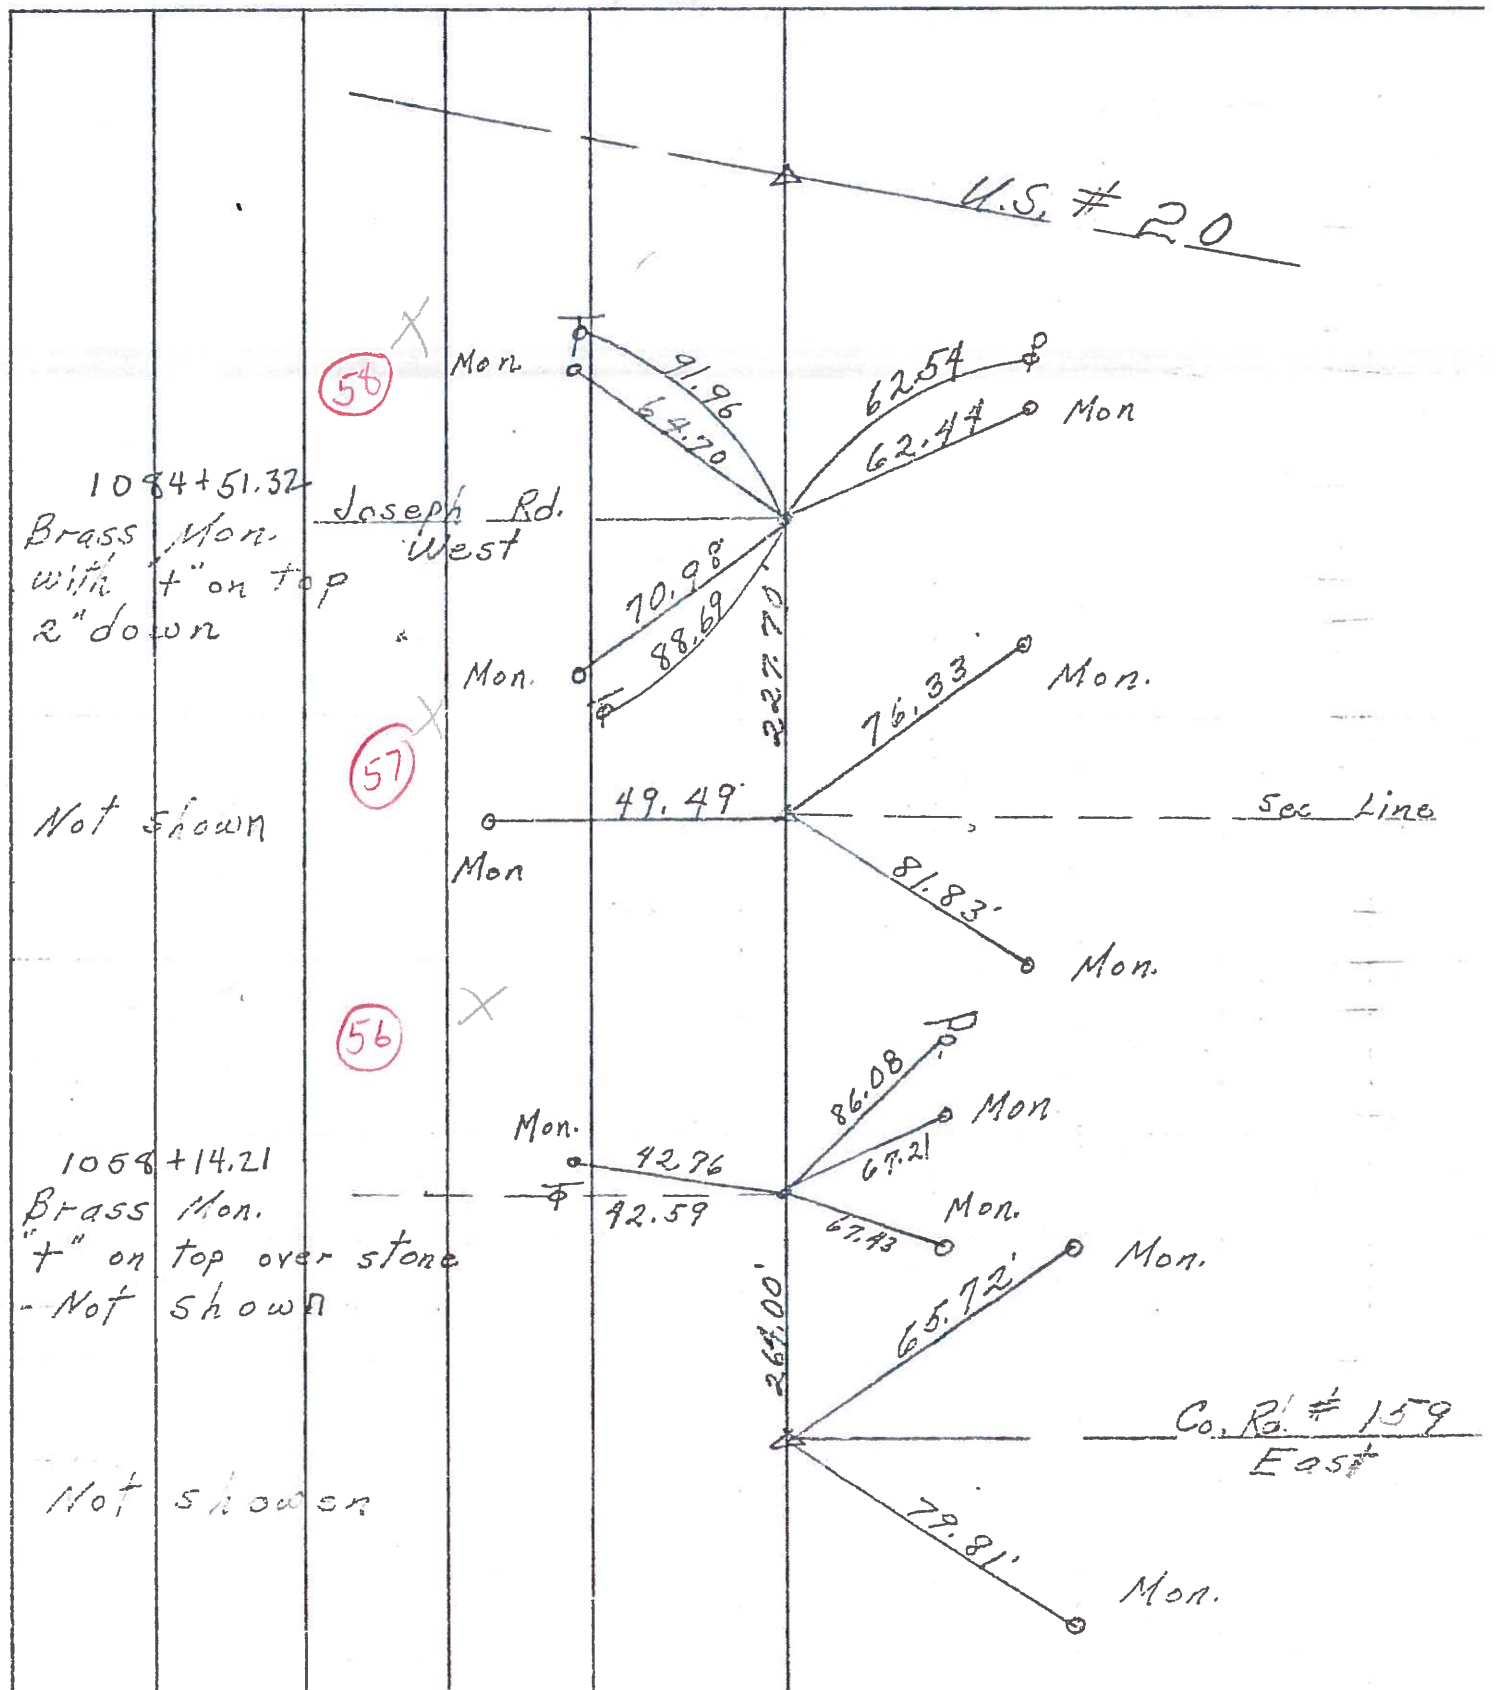 U.S. # 20
58
Mon.
91.96
64.70
62.54
62.44
Mon
1084+51.32
Brass Mon.
with "+" on top
2" down
Joseph Rd.
West
70.98'
88.69
Mon.
227.70'
57
76.33'
Mon.
Not shown
49.49'
Mon
Sec Line
81.83'
Mon.
56
86.08
Mon
67.21
Mon.
42.76
1058+14.21
Brass Mon.
"+" on top over stone
- Not shown
42.59
67.43
Mon.
264.00'
65.72'
Mon.
Co. Rd. # 159
East
Not showen
79.81'
Mon.